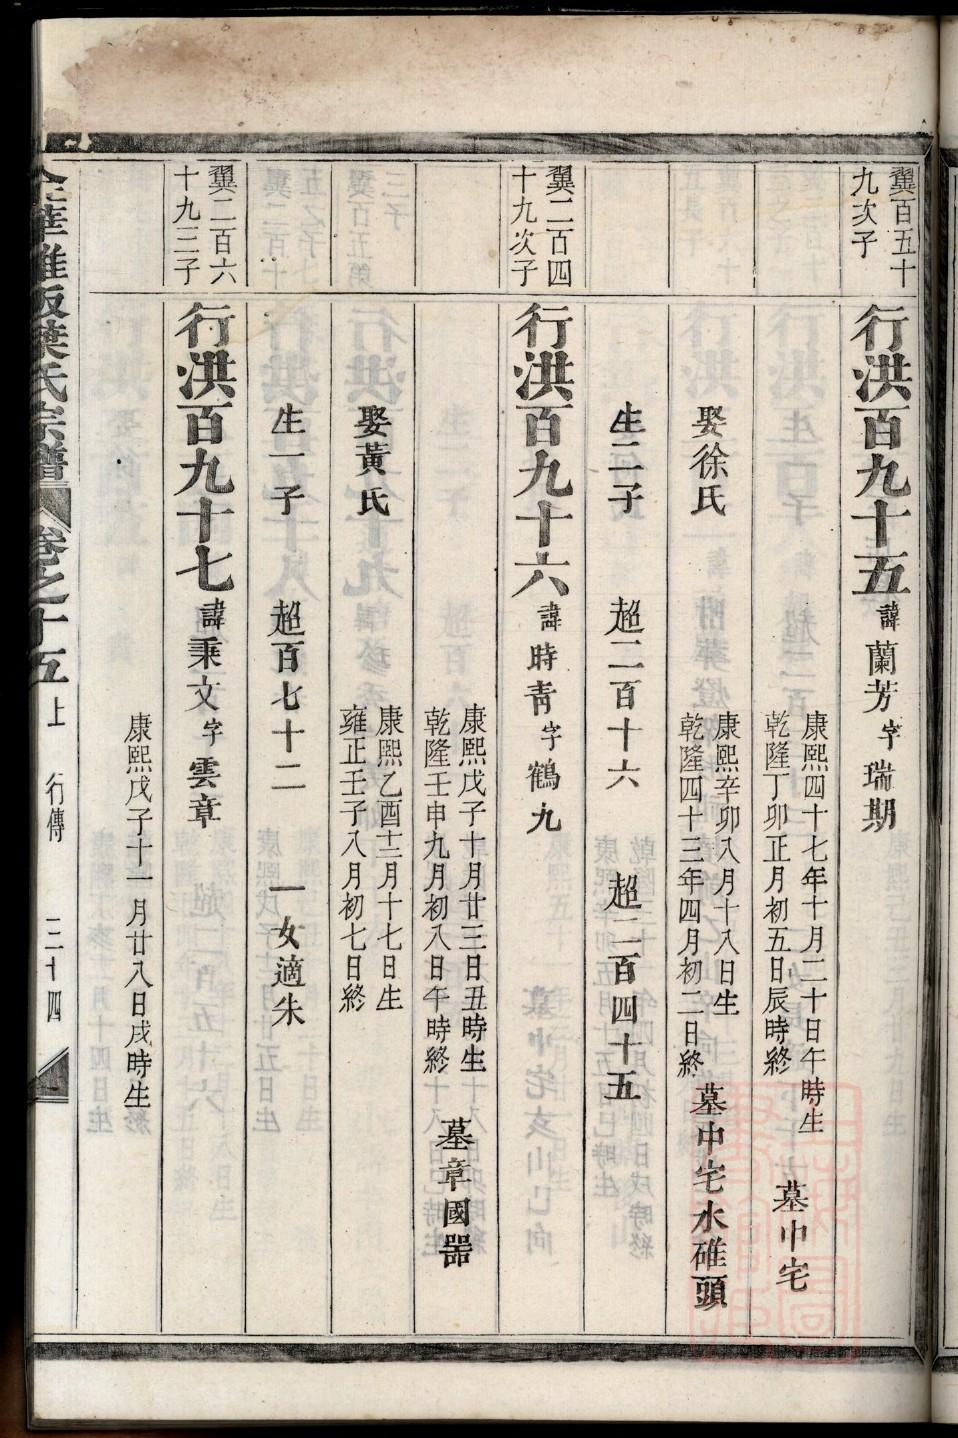 翼百五十
九次子
行洪百九十五 諱蘭芳字瑞期
康熙四十七年十月二十日午時生
乾隆丁卯正月初五日辰時終
墓中宅
娶徐氏
康熙辛卯八月十八日生
乾隆四十三年四月初二日終
墓中宅水碓頭
生二子 超二百十六 超二百四十五
翼二百四
十九次子
行洪百九十六 諱時青字鶴九
康熙戊子十月廿三日丑時生
乾隆壬申九月初八日午時終
墓章國器
娶黃氏
康熙乙酉十二月十七日生
雍正壬子八月初七日終
生一子 超百七十二 一女適朱
翼二百六
十九三子
行洪百九十七 諱秉文字雲章
康熙戊子十一月廿八日戌時生
金華雅畈葉氏宗譜 卷之十五 上 行傳 二十四